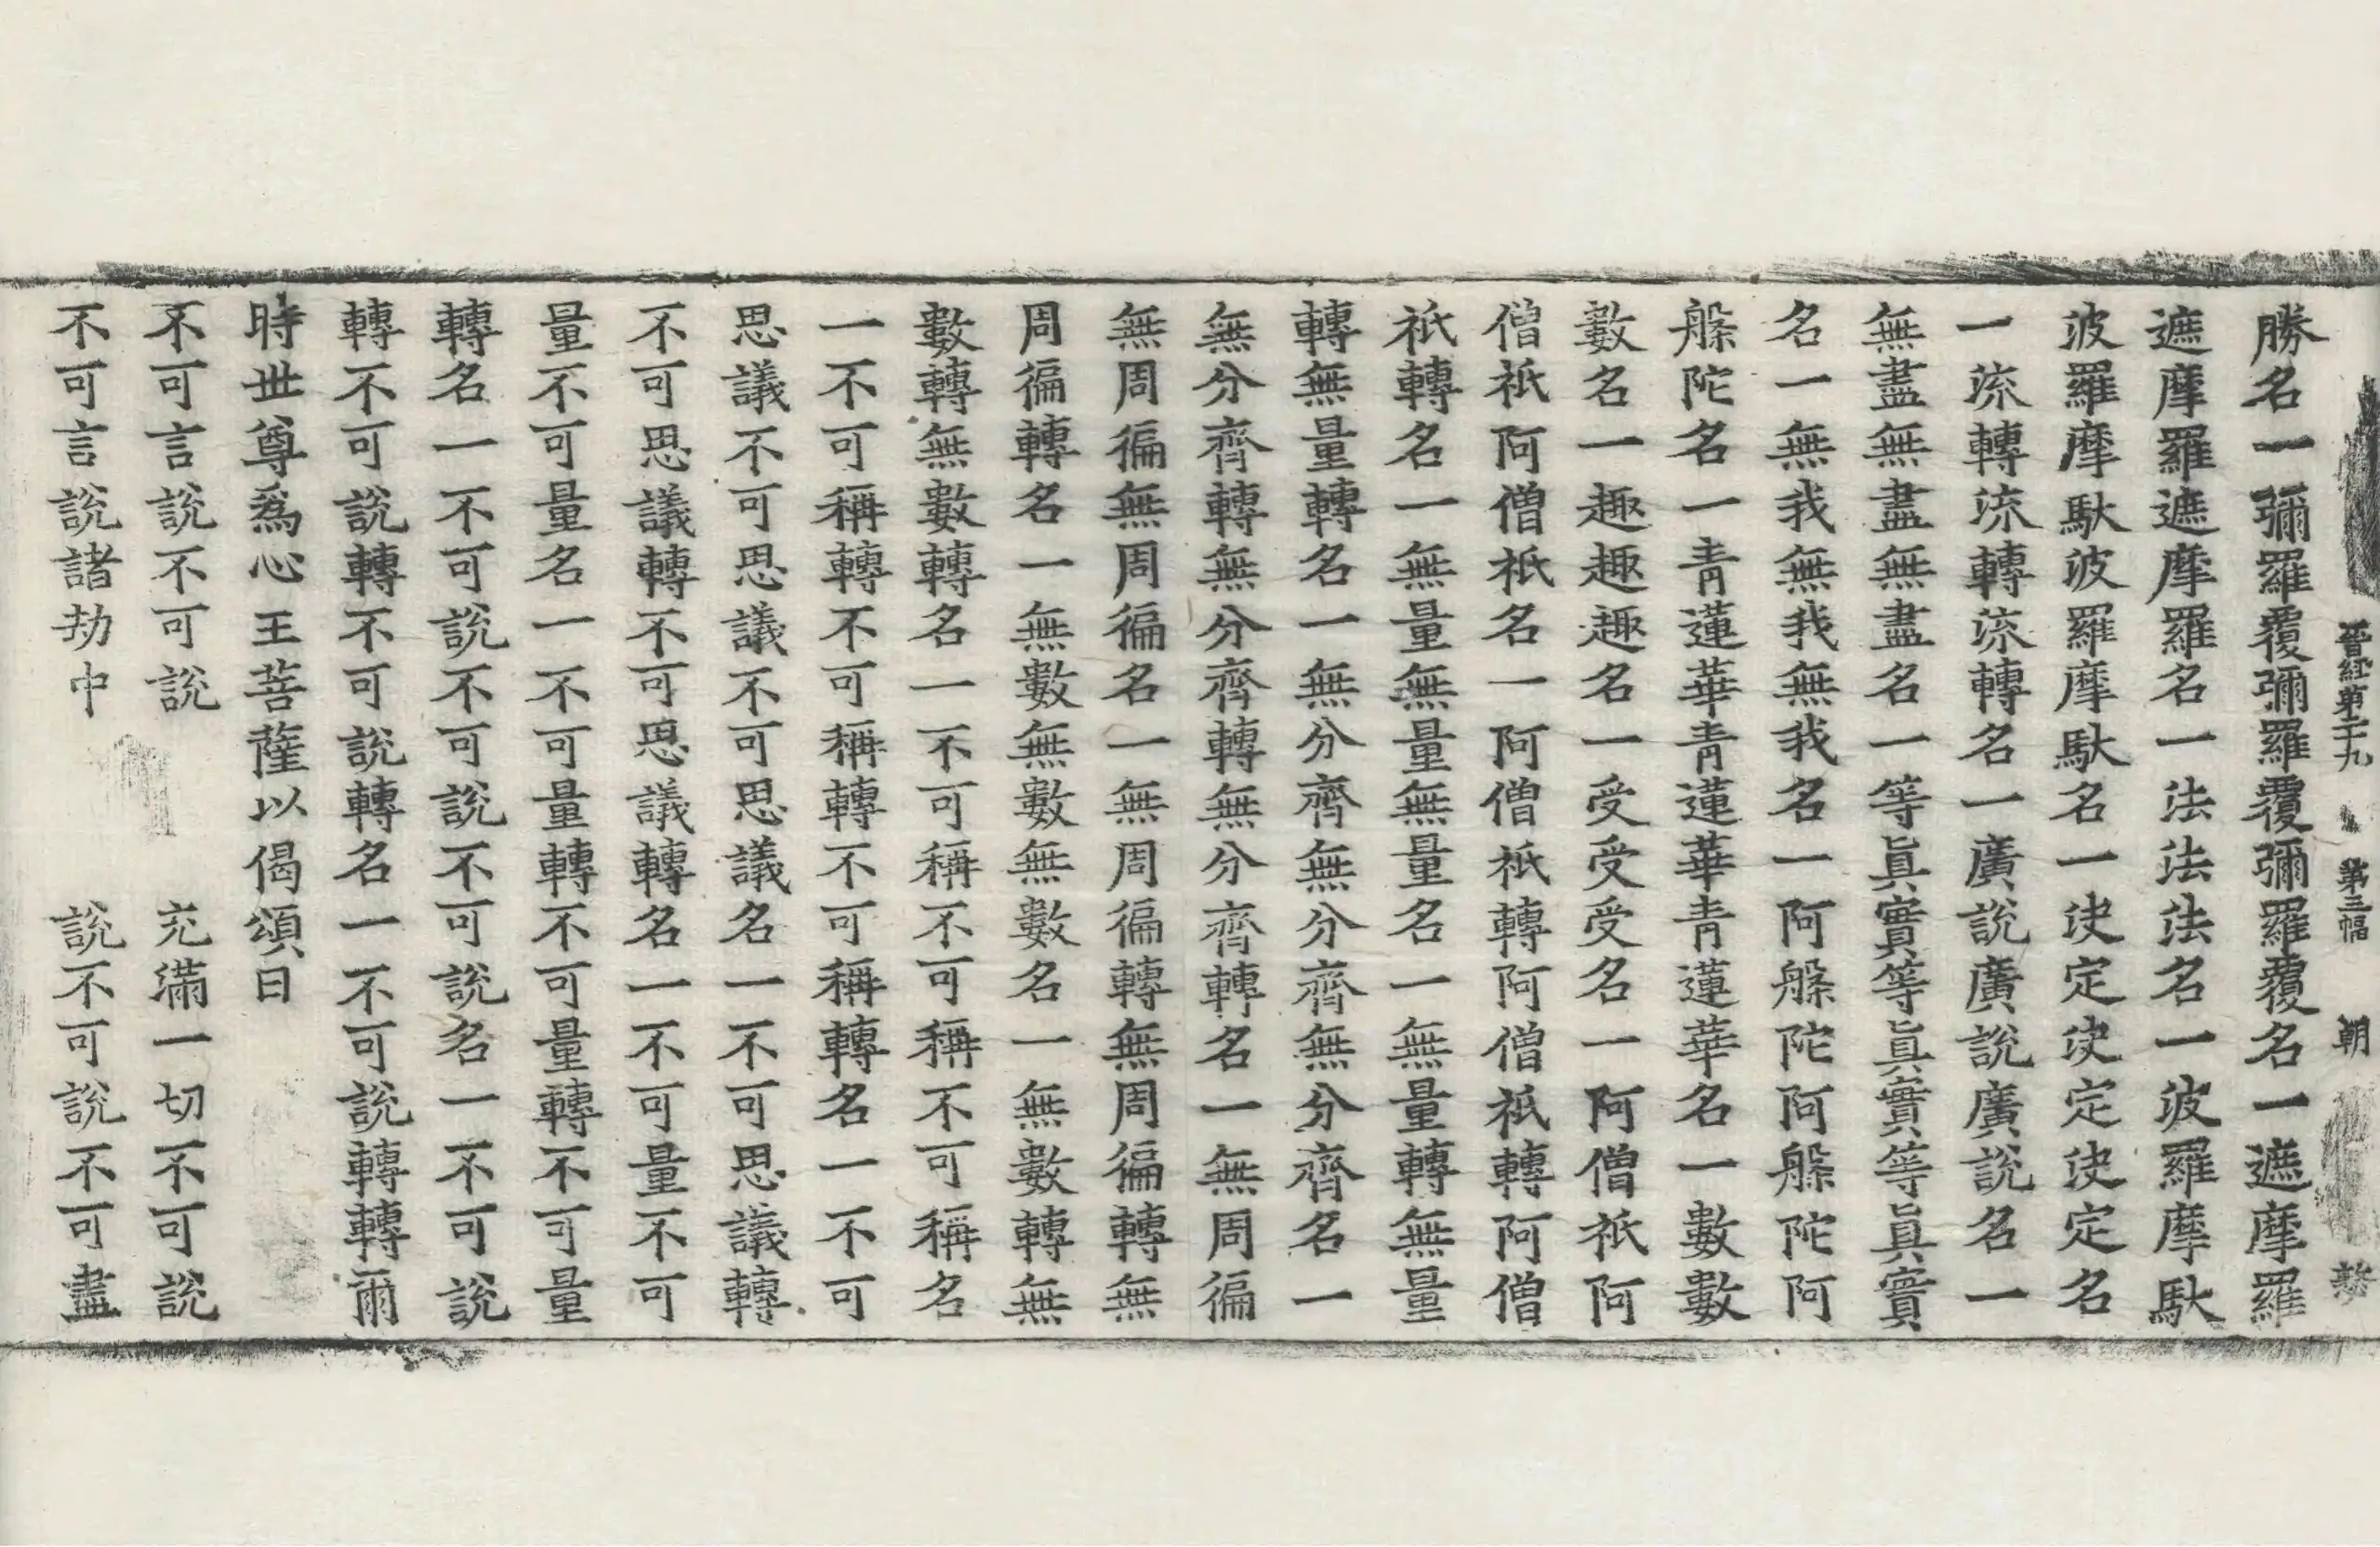 晉經第二十九 第三幅 朝
勝名一彌羅覆彌羅覆彌羅覆名一遮摩羅
遮摩羅遮摩羅名一法法法名一波羅摩馱
波羅摩馱波羅摩馱名一决定决定决定名
一流轉流轉流轉名一廣說廣說廣說名一
無盡無盡無盡名一等眞實等眞實等眞實
名一無我無我無我名一阿躰陀阿躰陀阿
躰陀名一青蓮華青蓮華青蓮華名一數數
數名一趣趣趣名一受受受名一阿僧祇阿
僧祇阿僧祇名一阿僧祇轉阿僧祇轉阿僧
祇轉名一無量無量無量名一無量轉無量
轉無量轉名一無分齊無分齊無分齊名一
無分齊轉無分齊轉無分齊轉名一無周徧
無周徧無周徧名一無周徧轉無周徧轉無
周徧轉名一無數無數無數名一無數轉無
數轉無數轉名一不可稱不可稱不可稱名
一不可稱轉不可稱轉不可稱轉名一不可
思議不可思議不可思議名一不可思議轉
不可思議轉不可思議轉名一不可量不可
量不可量名一不可量轉不可量轉不可量
轉名一不可說不可說不可說名一不可說
轉不可說轉不可說轉名一不可說轉轉爾
時世尊爲心王菩薩以偈頌曰
不可言說不可說 充滿一切不可說
不可言說諸劫中 說不可說不可盡